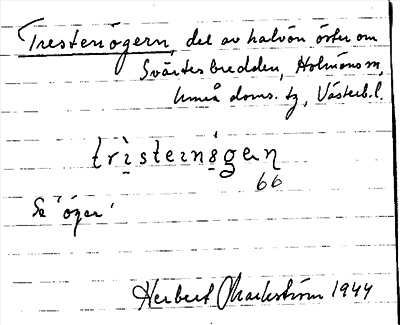 Trestenögern, del av halvön öster om
Svartesbredden, Holmöns sn,
Umeå doms. tg, Västerb. l.
trìsteinögen
66
Se "öger"
Herbert Markström 1944